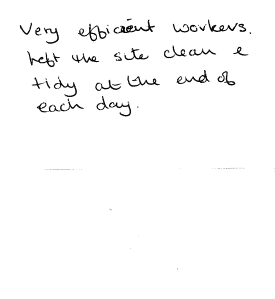 Very efficient workers.
Left the site clean &
tidy at the end of
each day.